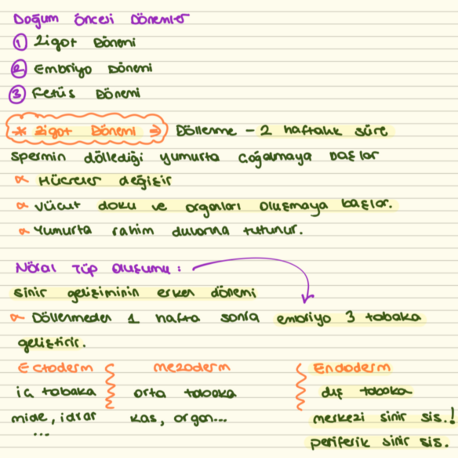 Doğum Öncesi Dönemler
① Zigot Dönemi
② Embriyo Dönemi
③ Fetüs Dönemi
* Zigot Dönemi → Döllenme - 2 haftalık süre
Spermin döllediği yumurta çoğalmaya başlar
∝ Hücreler değişir
∝ Vücut doku ve organları oluşmaya başlar.
∝ Yumurta rahim duvarına tutunur.
Nöral Tüp Oluşumu :
sinir gelişiminin erken dönemi
∝ Döllenmeden 1 hafta sonra embriyo 3 tabaka
geliştirir.
Ectoderm Mezoderm Endoderm
iç tabaka orta tabaka dış tabaka
mide, idrar kas, organ... merkezi sinir sis.!
... periferik sinir sis.